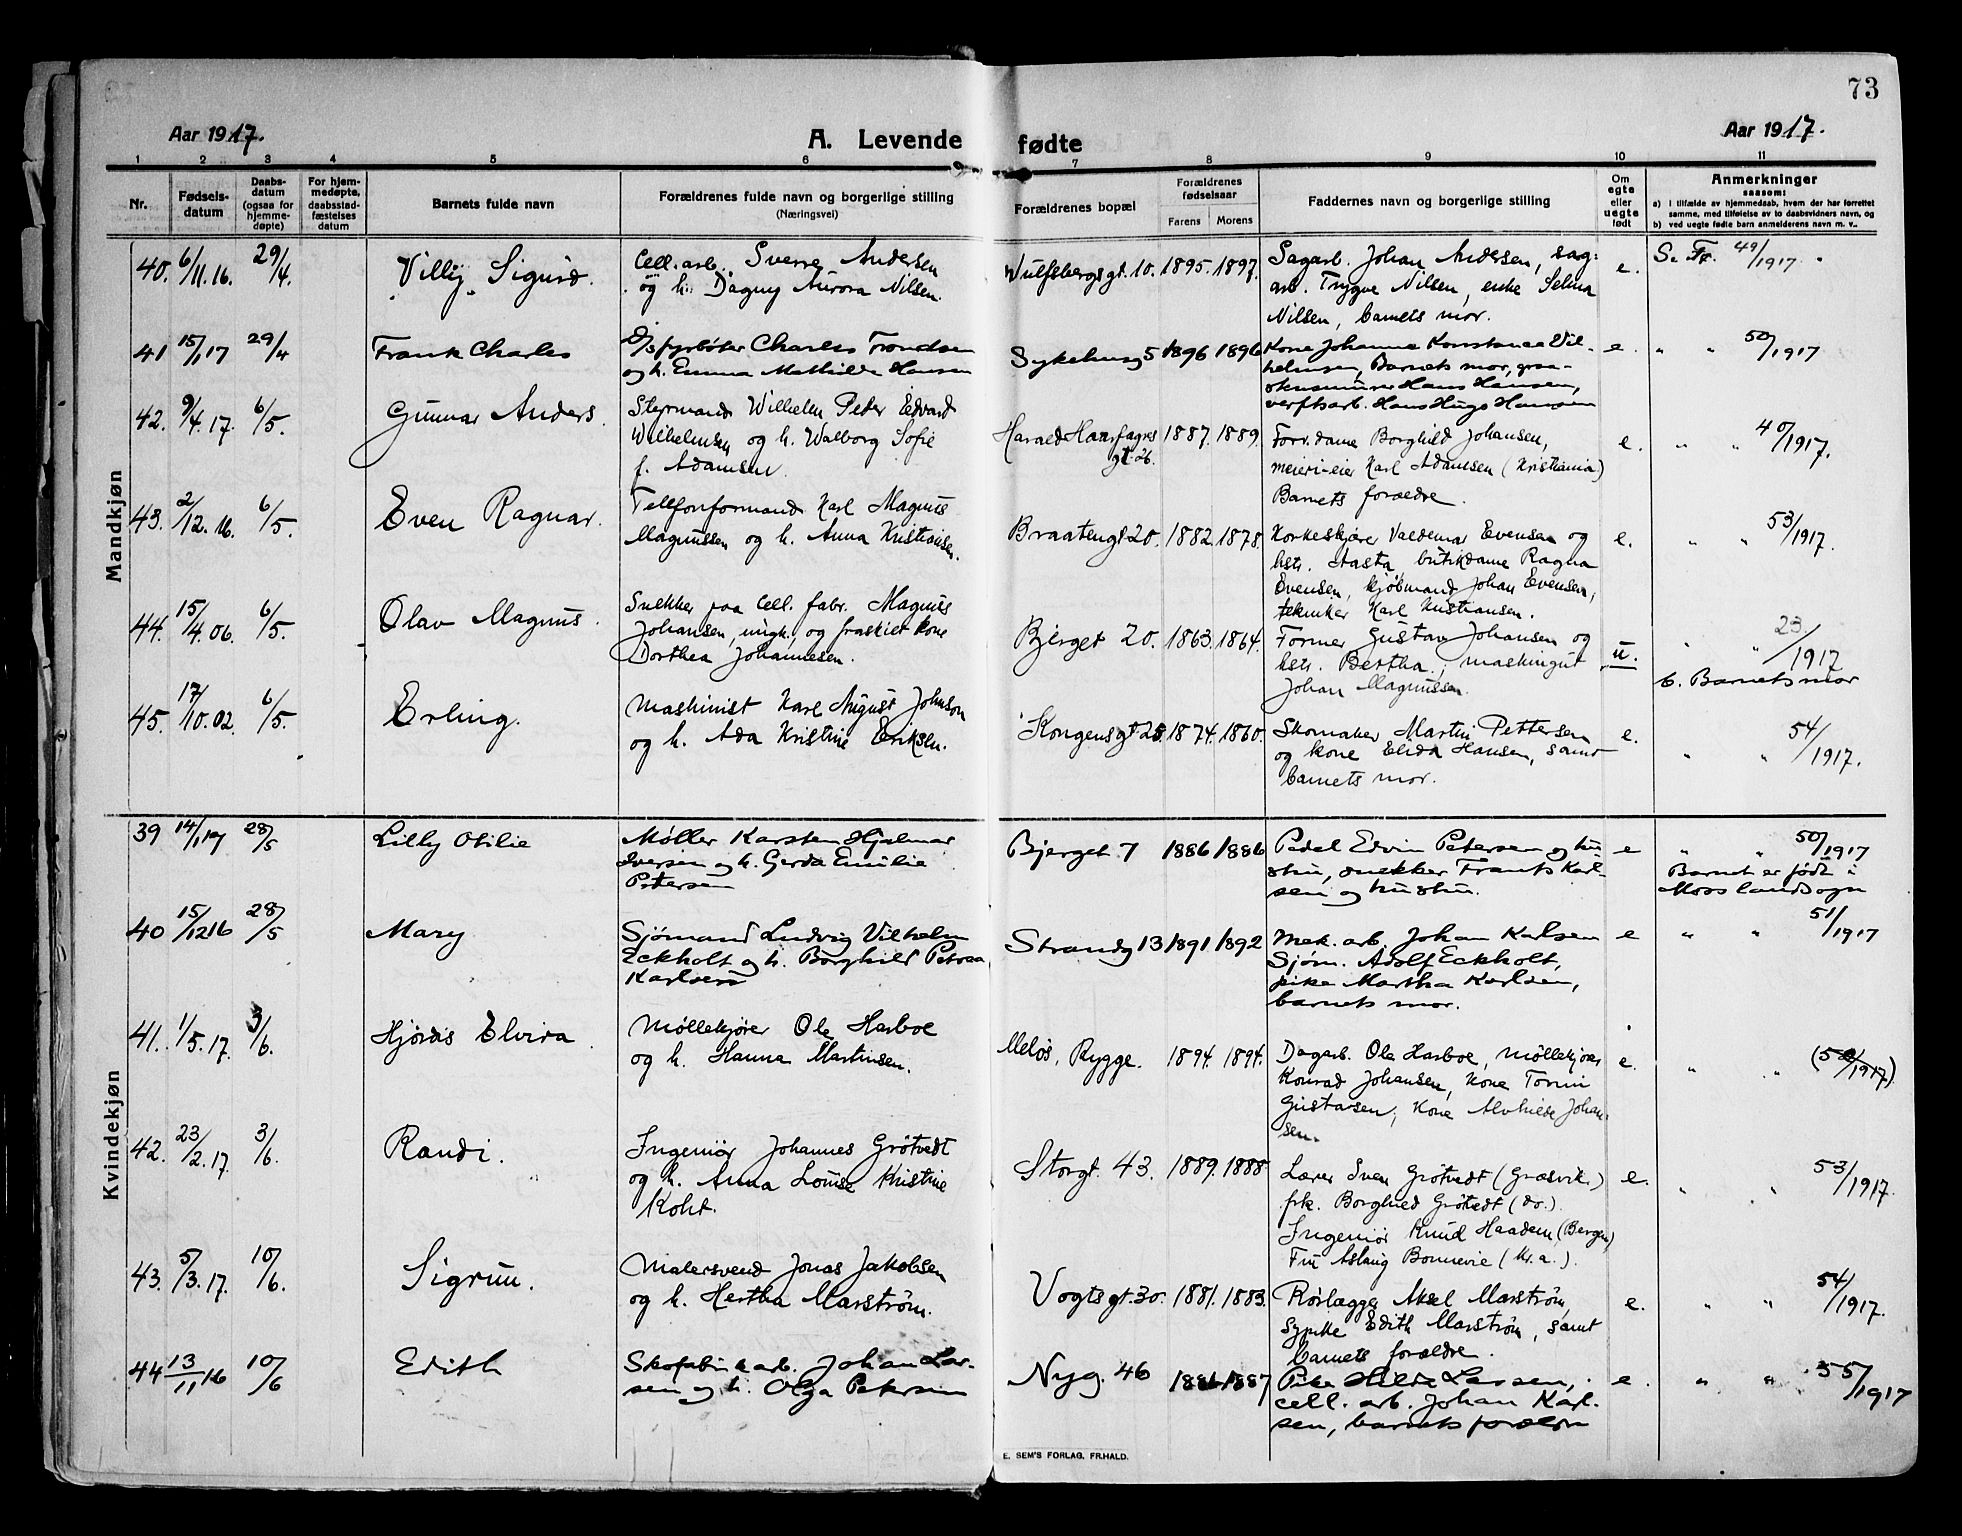 73
Aar 1917.
A. Levende fødte
Aar 1917.
1 2 3 4 5 6 7 8 9 10 11
Nr.
Fødsels-
datum
Daabs-
datum
(ogsaa for
hjemme-
døpte)
For hjem-
medøpte,
daabsstad-
fæstelses
datum
Barnets fulde navn
Forældrenes fulde navn og borgerlige stilling
(Næringsvei)
Forældrenes bopæl
Forældrenes
fødselsaar
Farens Morens
Faddernes navn og borgerlig stilling
Om
egte
eller
uegte
født
Anmerkninger
saasom:
a) i tilfælde av hjemmedaab, hvem der har forrettet
samme, med tilføielse av to daabsvidners navn, og
b) ved uegte fødte barn anmelderens navn m. v..
Mandkjøn
40. 6/11.16. 29/4. Villy Sigurd.
Cell. arb. Sverre Andersen
og h. Dagny Aurora Nilsen.
Wulfsbergsgt. 10. 1895. 1897.
Sagarb. Johan Andersen, sag-
arb. Trygve Nilsen, enke Selma
Nilsen, barnets mor.
e. S. Fr. 49/1917
41 15/1 17 29/4 Frank Charles
D/s fyrbøter Charles Trondsen
og h. Emma Mathilde Hansen
Sykehusg 5 1896 1896
Kone Johanne Konstanse Vil-
helmsen, Barnets mor,
Hans Hansen,
verftsarb. Hans Hugo Hansen
e. " " 50/1917
42. 9/4.17. 6/5. Gunnar Anders.
Styrmand Wilhelm Peder Edvard
Wilhelmsen og h. Walborg Sofie
f. Adamsen.
Harald Haarfagres
gt. 26. 1887. 1889.
Forr.dame Borghild Johansen,
meieri-eier Karl Adamsen (Kristiania)
Barnets forældre.
e. " " 40/1917.
43. 2/12.16. 6/5. Even Ragnar.
Telefonformand Karl Magnus
Magnussen og h. Anna Kristiansen.
Braatengt 20. 1882. 1878.
Korkeskjærer Valdemar Evensen og
hstr. Aasta, butikdame Ragna
Evensen, kjøbmand Johan Evensen,
tekniker Karl Kristiansen.
e. " " 53/1917.
44. 15/4.06. 6/5. Olav Magnus.
Snekker paa Cell. fabr. Magnus
Johansen, ungk. og fraskilt kone
Dorthea Johannesen.
Bjerget 20. 1863. 1864.
Former Gustav Johansen og
hstr. Bertha, maskingut
Johan Magnussen.
u. " " 23/1917
b. Barnets mor
45. 17/10.02. 6/5. Erling.
Maskinist Karl August Johnson
og h. Ada Kristine Eriksen.
Kongensgt 25. 1874. 1860.
Skomaker Martin Pettersen
og kone Elida Hansen, samt
barnets mor.
e. " " 54/1917.
Kvindekjøn
39 14/1 17 28/5 Lilly Otilie
Møller Karsten Hjalmar
Iversen og h. Gerda Emilie
Petersen
Bjerget 7 1886 1886
Pedel Edvin Petersen og hu-
stru, snekker Frants Karl-
sen og hustru.
e " " 50/1917
Barnet er født i
Moss landsogn
40 15/12 16 28/5 Mary
Sjømand Ludvig Vilhelm
Eckholt og h. Borghild Petrea
Karlsen
Strandg 13 1891 1892
Mek. arb. Johan Karlsen
Sjøm. Adolf Eckholt,
pike Martha Karlsen,
barnets mor.
e " " 51/1917
41. 1/5.17. 3/6. Hjørdis Elvira.
Møllekjører Ole Harboe
og h. Hanna Martinsen.
Meløs, Rygge. 1894. 1894.
Dagarb. Ole Harboe, møllekjører
Konrad Johansen, kone Tomine
Gustavsen, kone Alvhilde Johan-
sen.
e. " "
42. 23/2.17. 3/6. Randi.
Ingeniør Johannes Grøtvedt
og h. Anna Louise Kristine
Koht.
Storgt. 43. 1889. 1888
Lærer Sven Grøtvedt (Græsvik.)
frk. Borghild Grøtvedt (do.).
Ingeniør Knud Haadem (Bergen)
Fru Aslaug Bonnevie (Kr.a.).
e. " " 53/1917.
43. 5/3.17. 10/6. Sigrun.
Malersvend Jonas Jakobsen
og h. Hertha Marstrøm.
Vogtsgt. 30. 1881. 1883.
Rørlægger Aksel Marstrøm,
sypike Edith Marstrøm, samt
barnets forældre.
e. " " 54/1917.
44 13/11 16 10/6 Edith
Skofabrikarb. Johan Lar-
sen og h. Olga Petersen
Nyg. 46 1887
Pike Hilda Larsen,
cell. arb. Johan Karl-
sen, barnets forældre
e. " " 55/1917
E. SEM'S FORLAG, FR.HALD.